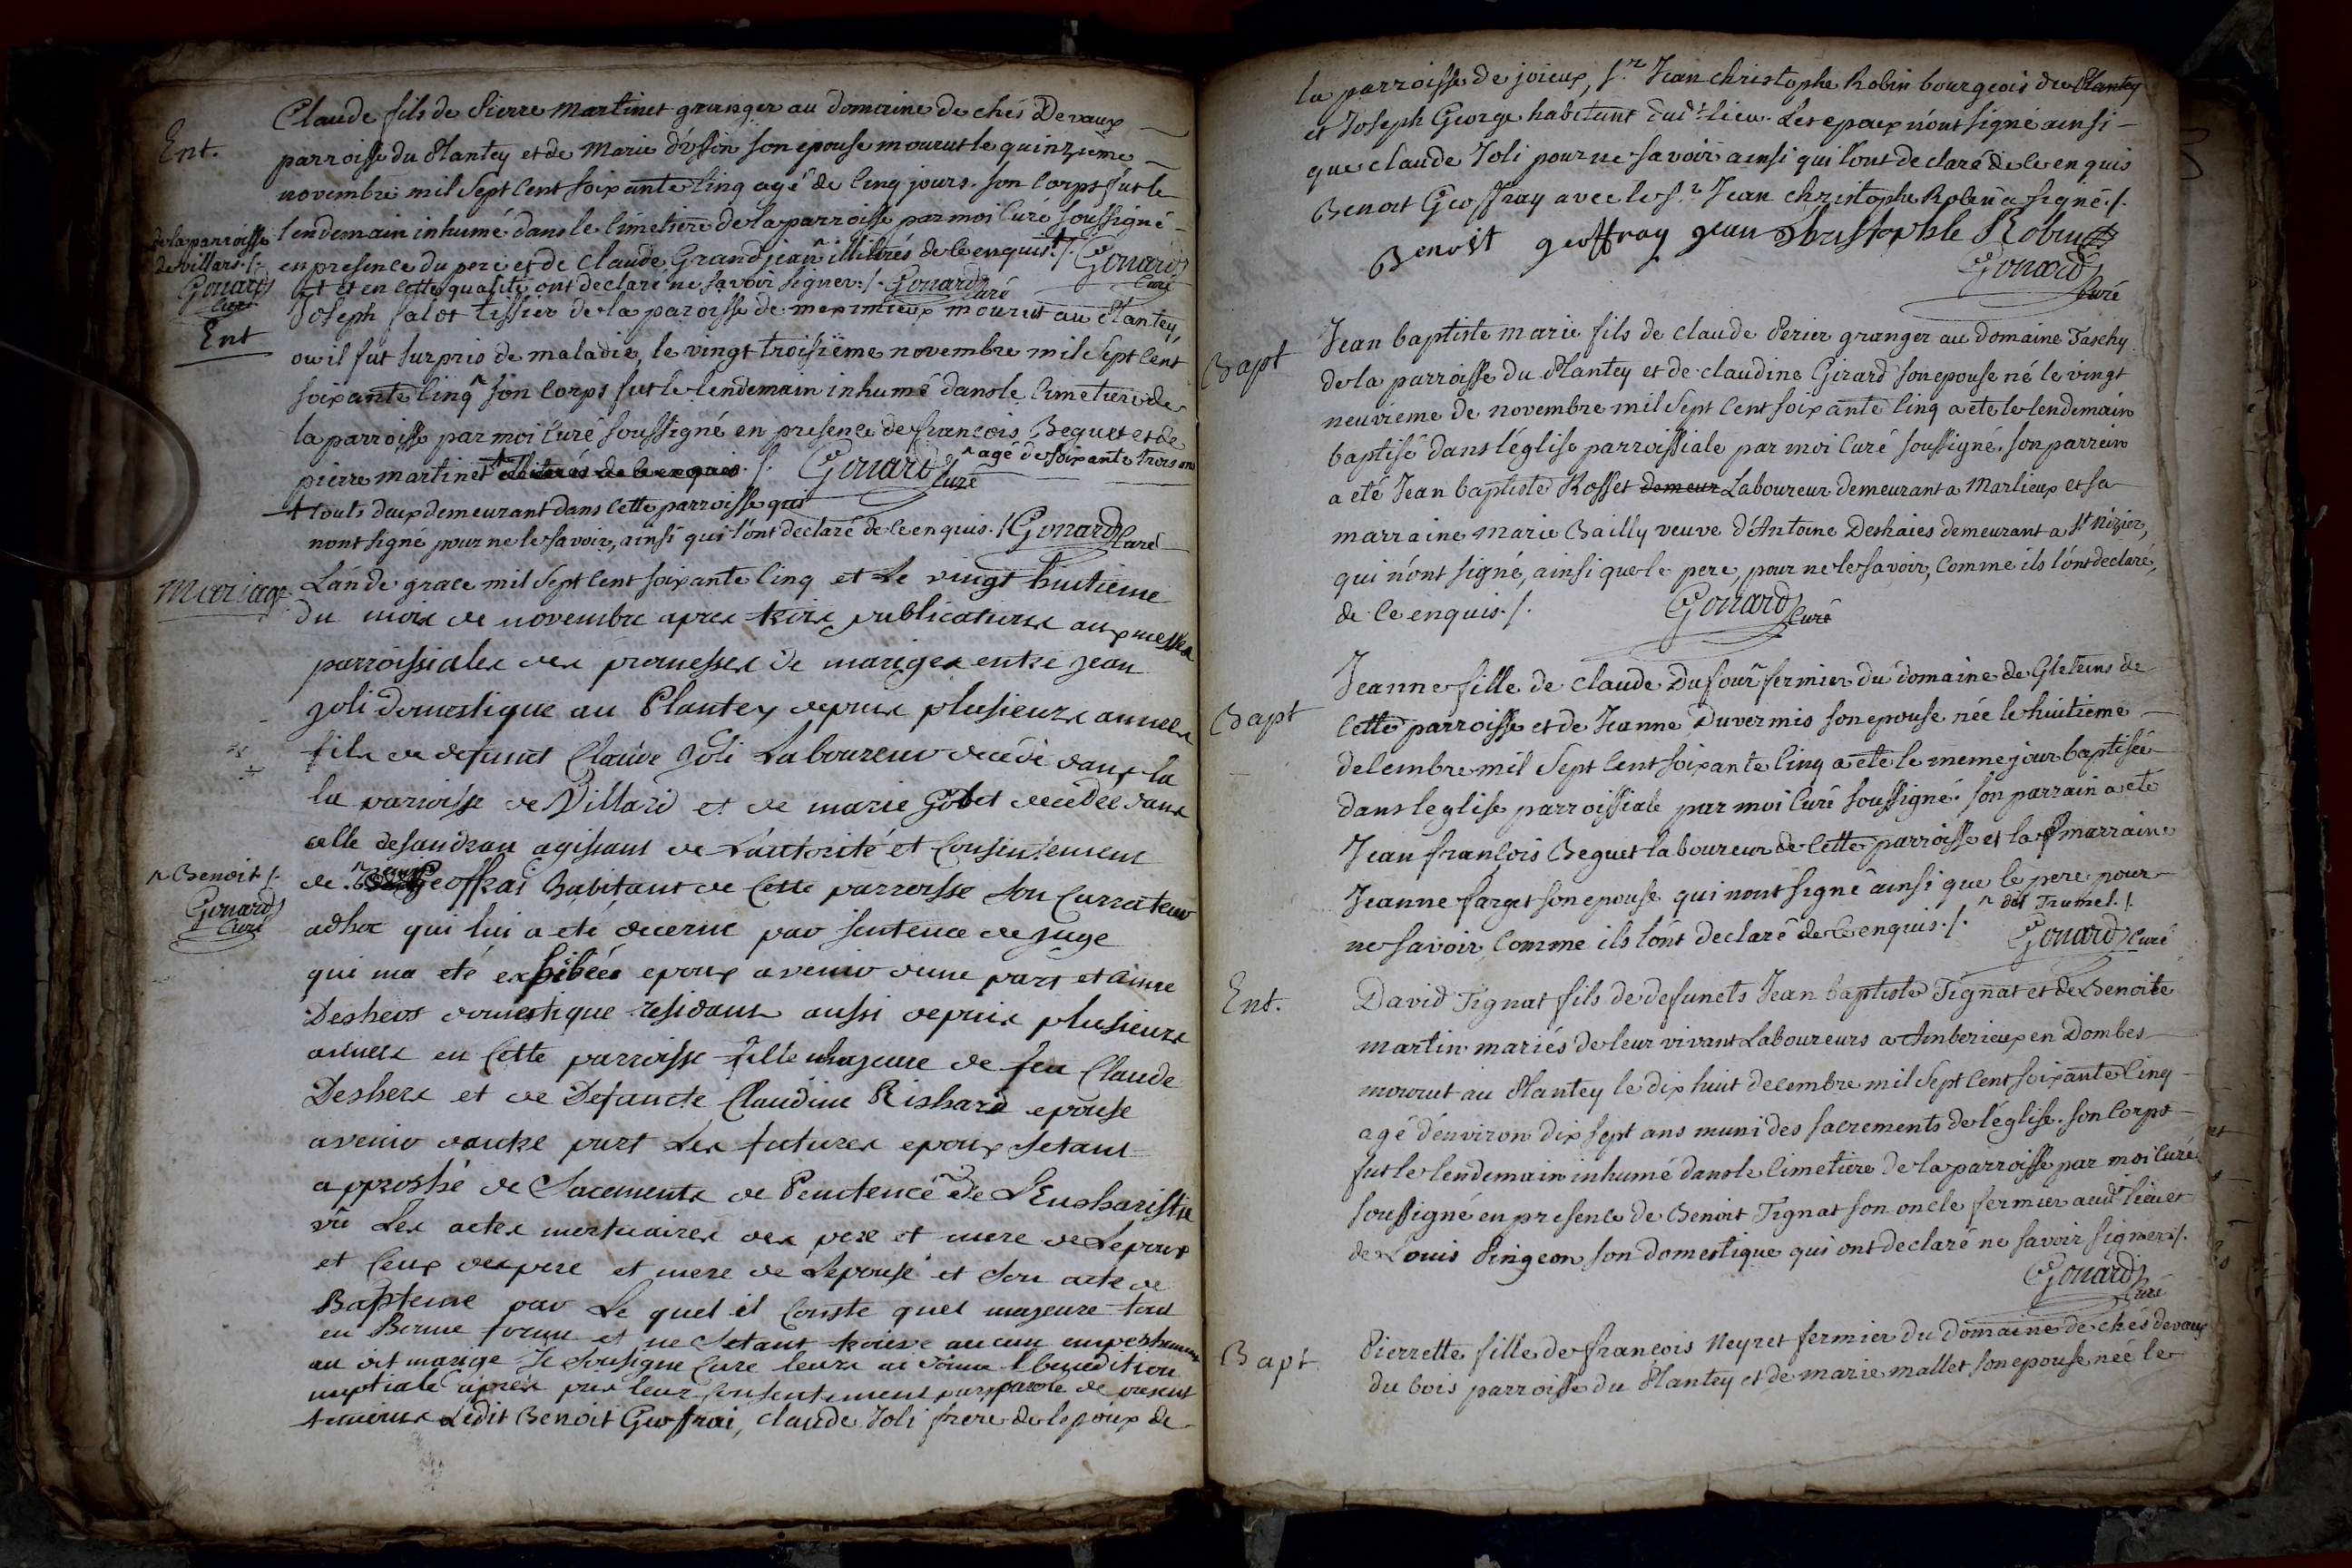 Ent.
Claude fils de Pierre Martinet granger au domaine de chés Devaux
parroisse du Plantey et de Marie d'Ossin son epouse mourut le quinzieme
novembre mil sept cent soixante cinq agé de cinq jours. son corps fut le
lendemain inhumé dans le cimetiere de la parroisse par moi curé soussigné
en presence du pere et de Claude Grandjean ^ illitérés de ce enquis ⸸ /. Gonard
curé
de la parroisse
de villars ./.
Gonard
curé
⸸ et en cette qualité ont declaré ne savoir signer ./. Gonard curé
Ent
Joseph salot tissier de la paroisse de meximieux mourut au Plantey,
ou il fut surpris de maladie, le vingt troisiême novembre mil sept cent
soixante cinq ^ son corps fut le lendemain inhumé dans le cimetiere de
la parroisse par moi curé soussigné en presence de francois Beguet et de
pierre martinet ⸸ illiterés de ce enquis ./. Gonard curé ^ agé de soixante trois ans
⸸ touts deux demeurant dans cette parroisse qui
nont signé pour ne le savoir, ainsi qui l'ont declaré de ce enquis ./. Gonard curé
Mariage
L'an de grace mil sept cent soixante cinq et Le vingt huitieme
du mois de novembre apres trois publications aux messes
parroissiales des promesses de mariges entre jean
joli domestique au Plantey depuis plusieurs annees
fils de defunct Claude Joli Laboureur decedé dans la
la parroisse de Villard et de marie Gobet decédée dans
celle desandran agissant de L'autorité et consentement
de ^ Geoffrai habitant de cette parroisse son currateur
^ Benoit /.
Gonard
curé
adhoc qui lui a eté decerné par sentence de juge
qui ma eté exhibéé epoux avenir dune part et
Deshers domestique residant aussi depuis plusieurs
années en cette parroisse fille majeure de feu Claude
Deshers et de Defuncte Claudine Rishard epouse
avenir dautre part Les futures epoux setant
approshé de Sacements de Penitence et de L'Eusharistie
vû Les actes mortuaires des pere et mere de Lepoux
et ceux des pere et mere de Lepouse et son acte de
Bapteme par Le quel il conste quel majeure tout
en Bonne forme et ne setant trouvé aucun empeshement
au dit marige Je sousigne Cure leurs ai donné l benediction
nuptiale aprés pris leur consentement par parole de present
temoins Ledit Benoit Geoffrai, claude Joli frere de lepoux de
la parroisse de joieux, s.r Jean christophe Robin bourgeois du Plantey
et Joseph George habitant dud.t lieu. Les epoux n'ont signé ainsi
que claude Joli pour ne savoir ainsi qui l'ont declaré de ce enquis
Benoit Geoffray avec le s.r Jean christophe Robin a signé ./.
Benoist geoffray jean Christophle Robin
Gonard
curé
Bapt
Jean baptiste marie fils de claude Perier granger au domaine Taschy
de la parroisse du Plantey et de claudine Girard son epouse né le vingt
neuvieme de novembre mil sept cent soixante cinq a eté le lendemain
baptisé dans l'église parroissiale par moi curé soussigné. son parrein
a eté Jean baptiste Rosset demeur Laboureur demeurant a Marlieux et sa
marraine marie Bailly veuve d'Antoine Deshaies demeurant a St Nizier,
qui n'ont signé, ainsi que le pere, pour ne le savoir, comme ils l'ont declaré,
de ce enquis ./. Gonard curé
Bapt
Jeanne fille de claude Dufour fermier du domaine de Gleteins de
cette parroisse et de Jeanne Duvermis son epouse née le huitieme
decembre mil sept cent soixante cinq a eté le meme jour baptisée
dans leglise parroissiale par moi curé soussigné. son parrain a eté
Jean francois Beguet laboureur de cette parroisse et la marraine
Jeanne farget son epouse qui nont signé ainsi que le pere pour
ne savoir comme ils l'ont declaré de ce enquis ./. ^ dit Trumel. /.
Gonard curé
Ent.
David Tignat fils de defuncts Jean baptiste Tignat et de Benoite
martin mariés de leur vivant Laboureurs a Amberieux en Dombes
mourut au Plantey le dix huit decembre mil sept cent soixante cinq
agé d'environ dix sept ans muni des sacrements de l'église. son corps
fut le lendemain inhumé dans le cimetiere de la parroisse par moi curé
soussigné en presence de Benoit Tignat son oncle fermier audt lieu et
de Louis Pingeon son domestique qui ont declaré ne savoir signer ./.
Gonard
curé
Bapt
Pierrette fille de francois Neyret fermier du domaine de chés devaux
du bois parroisse du Plantey et de marie mallet son epouse née le